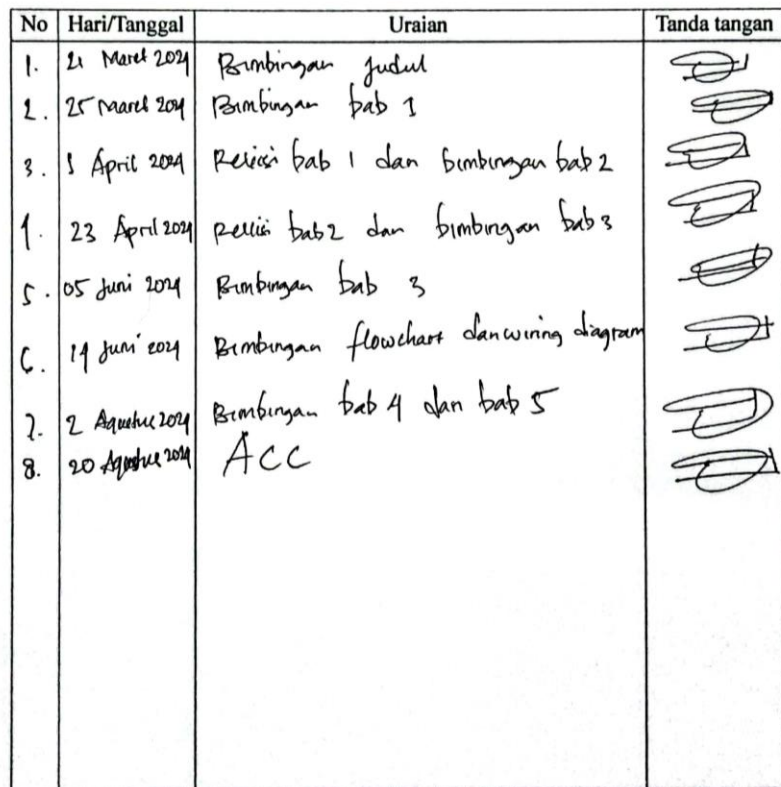 No Hari/Tanggal Uraian Tanda tangan
1. 21 Maret 2024 Bimbingan judul
2. 25 Maret 2024 Bimbingan bab 1
3. 1 April 2024 Revisi bab 1 dan bimbingan bab 2
4. 23 April 2024 Revisi bab 2 dan bimbingan bab 3
5. 05 Juni 2024 Bimbingan bab 3
6. 14 Juni 2024 Bimbingan flowchart dan wiring diagram
7. 2 Agustus 2024 Bimbingan bab 4 dan bab 5
8. 20 Agustus 2024 ACC